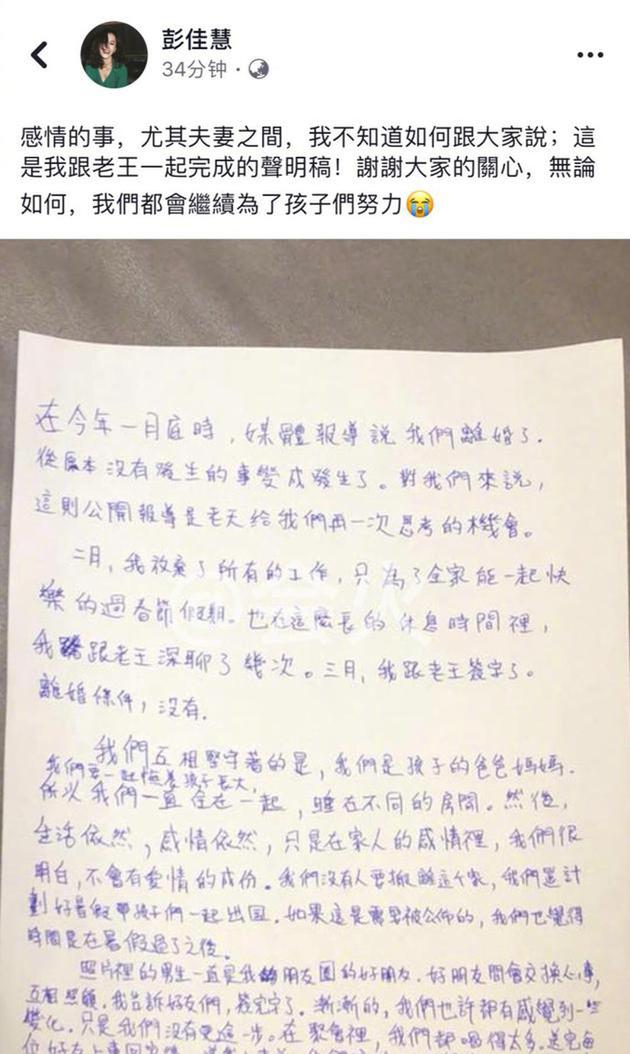 彭佳慧
34分钟
感情的事，尤其夫妻之間，我不知道如何跟大家說；這
是我跟老王一起完成的聲明稿！謝謝大家的關心，無論
如何，我們都會繼續為了孩子們努力😭
在今年一月底時，媒體報導說我們離婚了.
從原本沒有發生的事變成發生了。對我們來說，
這則公開報導是老天給我們再一次思考的機會。
二月，我放棄了所有的工作，只為了全家能一起快
樂的過春節假期。也在這麼長的休息時間裡，
我跟老王深聊了幾次。三月，我跟老王簽字了。
離婚條件，沒有.
我們互相堅守著的是，我們是孩子的爸爸媽媽.
我們要一起陪養孩子長大，
所以我們一直住在一起，睡在不同的房間。然後，
生活依然，感情依然，只是在家人的感情裡，我們很
明白，不會有愛情的成份。我們沒有人要搬離這个家，我們還計
劃好暑假帶孩子們一起出国。如果這是需要被公佈的，我們也覺得
時間是在暑假過了之後。
照片裡的男生一直是我的朋友圈的好朋友. 好朋友間會交換心事，
互相照顧. 我告訴好友們，簽完字了. 漸漸的，我們也許都有感覺到一些
變化. 只是我們沒有更進一步。在聚會裡，我們都喝得太多. 送完每
位好友上車回家